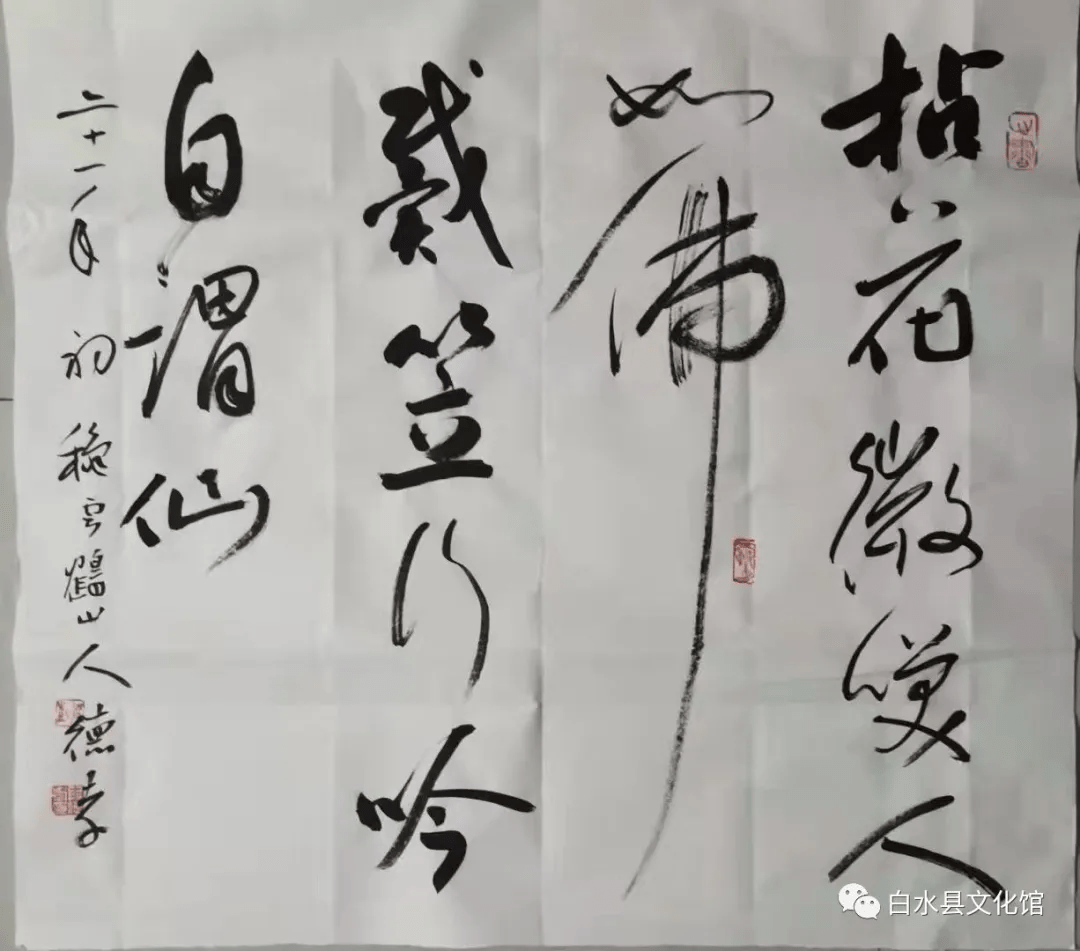 拈花微笑人
如佛
戴笠行吟
自謂仙
二十一年初穐云鶴山人德孝
白水县文化馆